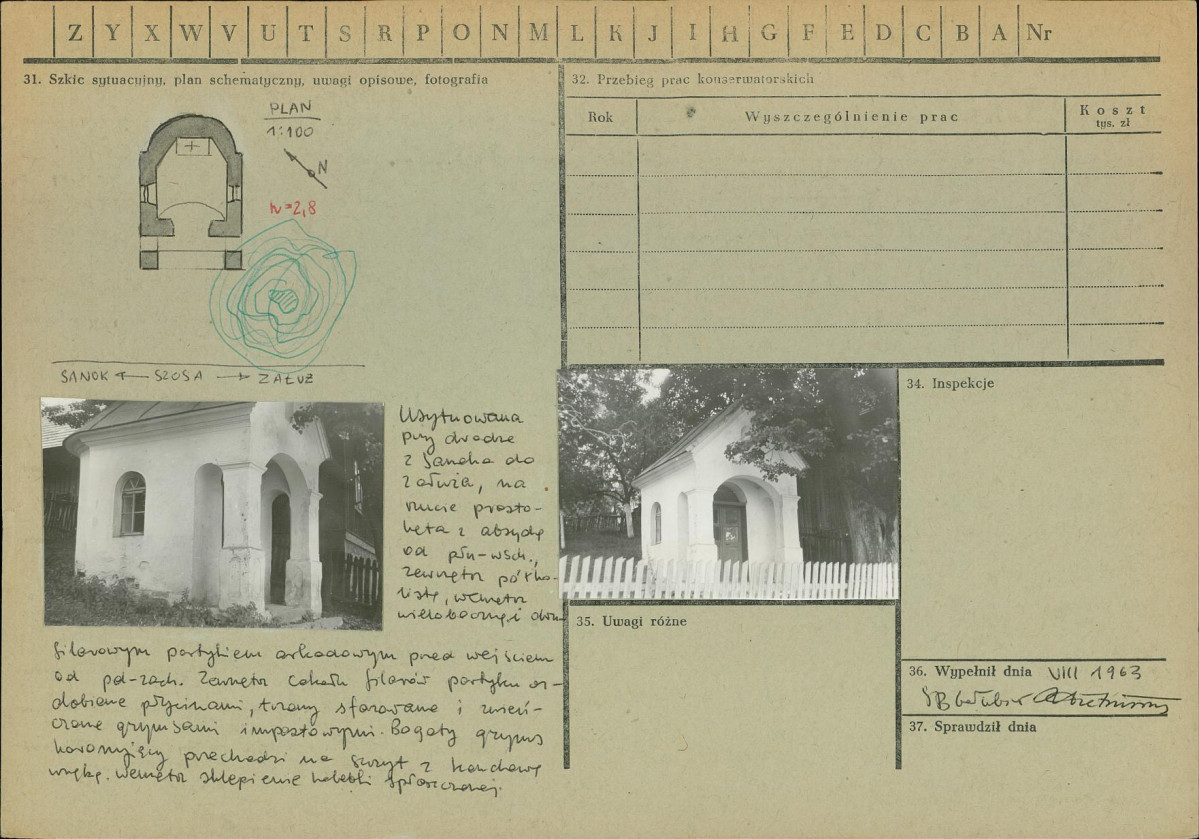 Z Y X W V U T S R P O N M L K J I H G F E D C B A Nr
31. Szkic sytuacyjny, plan schematyczny, uwagi opisowe, fotografia
PLAN
1:100
N
h=2,8
SANOK ← SZOSA → ZAŁUŻ
Usytuowana
przy drodze
z Sanoka do
Załuża, na
rzucie prosto-
kąta z absydą
od płn-wsch.,
zewnątrz półko-
listą, wewnątrz
wieloboczną i dwu
filarowym portykiem arkadowym przed wejściem
od pd-zach. Zewnątrz cokoły filarów portyku oz-
dobione płycinami, trzony sfazowane i zwień-
czone gzymsami impostowymi. Bogaty gzyms
koronujący przechodzi na szczyt z konchową
wnęką. Wewnątrz sklepienie kolebki spłaszczonej.
32. Przebieg prac konserwatorskich
Rok
Wyszczególnienie prac
Koszt
tys. zł
34. Inspekcje
35. Uwagi różne
36. Wypełnił dnia VIII 1963
37. Sprawdził dnia